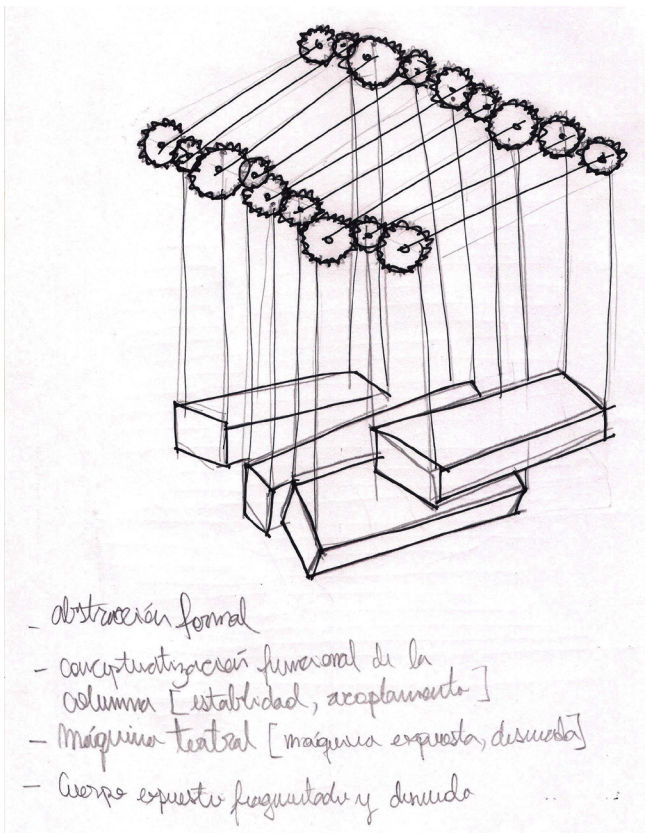 - abstracción formal
- conceptualización funcional de la
columna [estabilidad, acoplamiento]
- máquina teatral [máquina expuesta, desnuda]
- Cuerpo expuesto fragmentado y desnudo